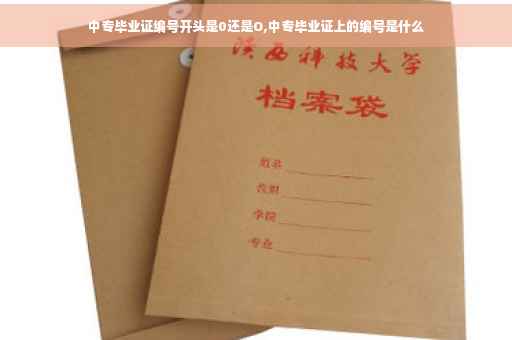 中专毕业证编号开头是0还是O,中专毕业证上的编号是什么
陕西科技大学
档案袋
姓名
学院
专业